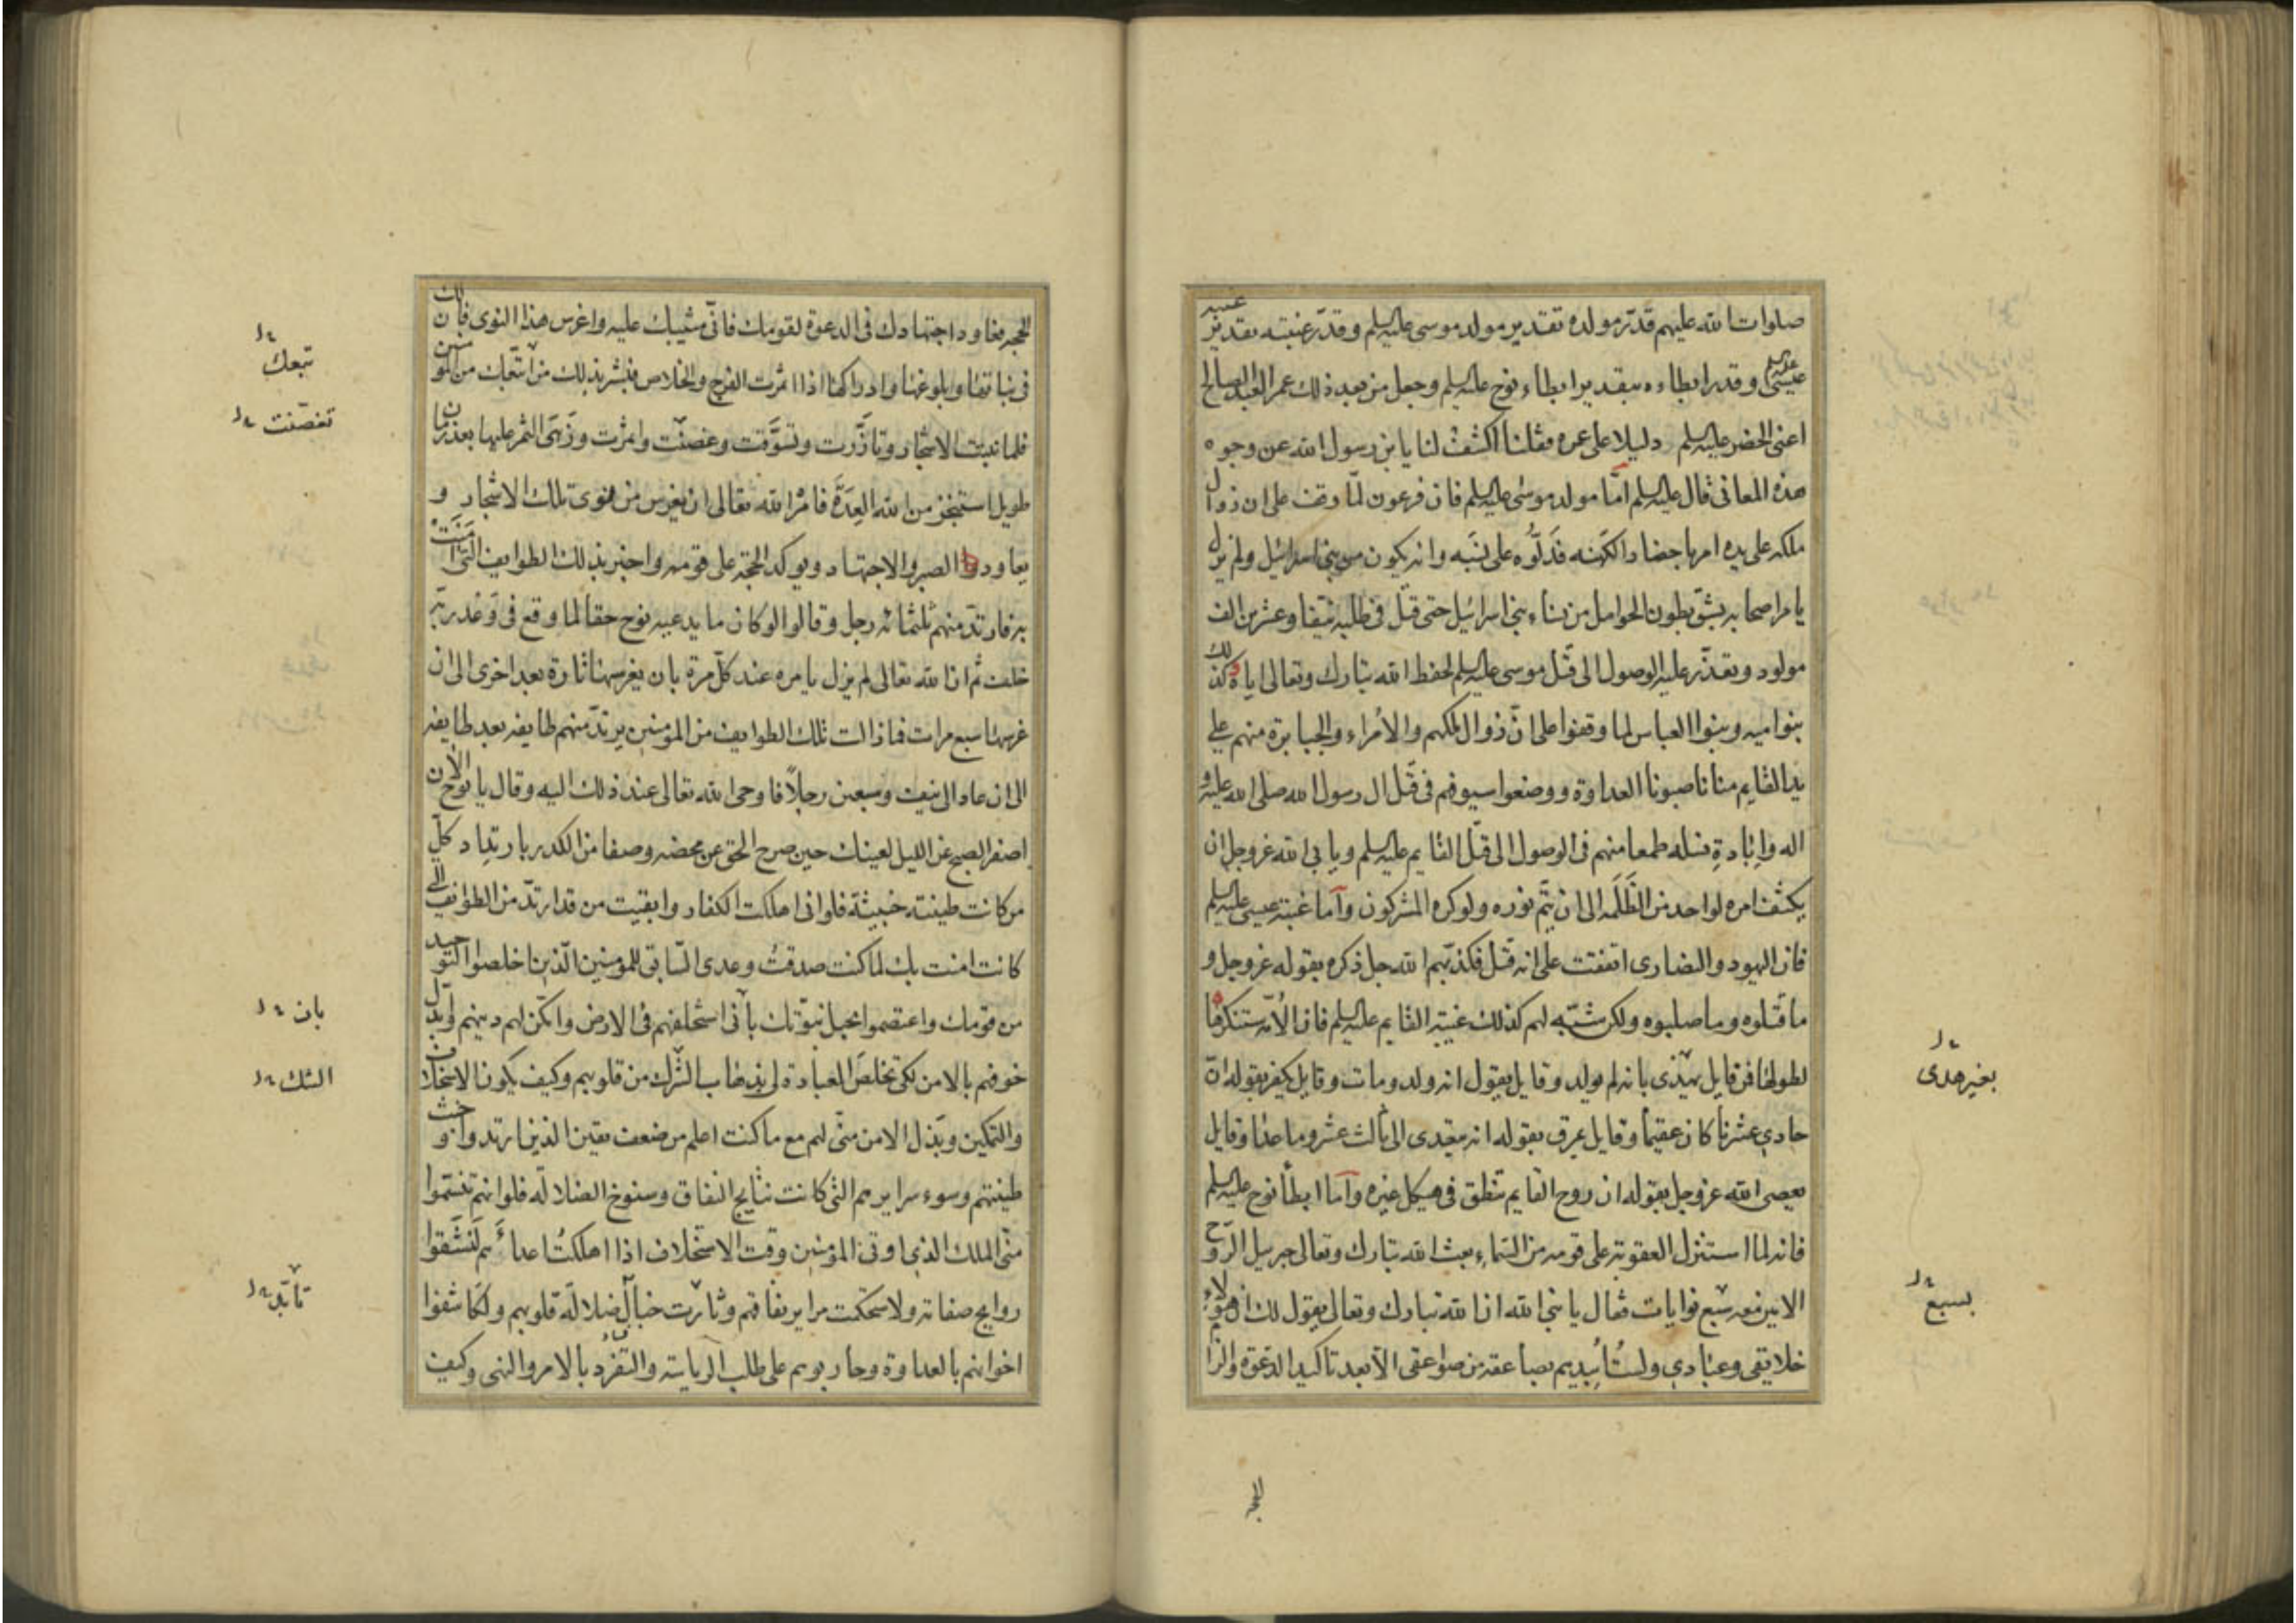 صلوات الله عليهم قدّر مولده تقدير مولد موسى عليه السلم وقدّر غيبته بتقدير غيبة
عيسى عليه السلم وقدر ابطاءه بتقدير ابطاء نوح عليه السلم وجعل من بعد ذلك عمر العبد الصالح
اعنى الخضر عليه السلم دليلا على عمره فقلنا اكشف لنا يا بن رسول الله عن وجوه
هذه المعانى قال عليه السلم امّا مولد موسى عليه السلم فان فرعون لمّا وقف على ان زوال
ملكه على يده امر باحضار الكَهَنه فَدَلُّوه على نَسَبه وانه يكون من بنى اسرائيل ولم يزل
يامر اصحابه بشقّ بطون الحوامل من نساء بنى اسرائيل حتى قتل فى طلبه نيّفا وعشرين الف
مولود وتعذّر عليه الوصول الى قتل موسى عليه السلم لحفظ الله تبارك وتعالى اياه كذلك
بنوا اميه وبنوا العباس لما وقفوا على انّ زوال ملكهم والأمراء والجبابرة منهم على
يد القايم منا ناصبونا العداوة ووضعوا سيوفهم فى قتل ال رسول الله صلى الله عليه و
اله وإبادةِ نسله طمعا منهم فى الوصول الى قتل القايم عليه السلم ويابى الله عزوجل ان
يكشف امره لواحد من الظَلَمه الى ان يتمّ نوره ولو كره المشركون وآما غيبة عيسى عليه السلم
فان اليهود والنصارى اتفقت على انه قتل فكذبهم الله جل ذكره بقوله عزوجل و
ما قتلوه وما صلبوه ولكن شبّه لهم كذلك غيبة القايم عليه السلم فان الأمّه ستنكرها
لطولها فمن قايل يهذى بانه لم يولد وقايل يقول انه ولد ومات وقايل يكفر بقوله انّ
حادى عشرنا كان عقيمًا وقايل يمرق بقوله انه يتعدى الى ثالث عشر وما عدا وقايل
يعصى الله عزوجل بقوله ان روح القايم تنطق فى هيكل غيره وآما ابطأ نوح عليه السلم
فانه لما استنزل العقوبة على قومه من السّماءِ بعث الله تبارك وتعالى جبرييل الرّوح
الامين معه سبع نوايات فقال يا نبى الله ان الله تبارك وتعالى يقول لك ان هؤلاءِ
خلايقى وعبادى ولستُ أُبيدهم بصاعقة من صواعقى الّا بعد تاكيد الدّعوة والزام
الحجه
بغير هدى
بسبع
الحجه فعاود اجتهادك فى الدعوة لقومك فانّى مثيبك عليه واغرس هذا النوى فان لك
فى نباتها وبلوغها وادراكها اذا اثمرت الفرج والخلاص فبشر بذلك من اتبعك من المومنين
فلما نبتت الاشجار وتازّرت وتسوَّقت وغصنت واثمرت وزَهَى الثمر عليها بعد زمان
طويل استنجز من الله العِدَةَ فامره الله تعالى ان يغرس من نوى تلك الاشجار و
يعاود الصبر والاجتهاد ويوكد الحجة على قومه واخبر بذلك الطوايف التى آمَنَتْ
به فارتدّ منهم ثلثمائه رجل وقالوا لو كان ما يدعيه نوح حقا لما وقع فى وَعْد ربّه
خلف ثم ان الله تعالى لم يزل يامره عند كلّ مرة بان يغرسها تارة بعد اخرى الى ان
غرسها سبع مرات فما زالت تلك الطوايف من المؤمنين يرتدّ منهم طايفه بعد طايفه
الى ان عاد الى نيف وسبعين رجلًا فاوحى الله تعالى عند ذلك اليه وقال يا نوح الآن
اسفر الصبح عن الليل لعينك حين صرح الحق عن محضه وصفا من الكدر بارتداد كلّ
من كانت طينته خبيثة فلو انى اهلكت الكفار وابقيت من قد ارتدّ من الطوايف التى
كانت امنت بك لما كنت صدقت وعدى السّابق للمومنين الّذين اخلصوا التوحيد
من قومك واعتصموا بحبل نبوّتك بأنى استخلفهم فى الارض وامكّن لهم دينهم وابدّل
خوفهم بالامن لكى تخلصَ العبادة لى بذهاب الشرك من قلوبهم وكيف يكون الاستخلاف
والتمكين وبَذل الامن منّى لهم مع ما كنت اعلم من ضعف يقين الذين ارتدوا وخبث
طينتهم وسوء سرايرهم التى كانت نتايج النفاق وسنوخ الضلاله فلو انهم تنسّموا
منّى الملك الذى اوتى المؤمنين وقت الاستخلاف اذا اهلكتُ اعداءَهم لَنَشَقوا
روايح صفاته ولاستحكمت مراير نفاقهم وثارت خبال ضلالة قلوبهم ولكاشفوا
اخوانهم بالعداوة وحاربوهم على طلب الرياسة والتفرّد بالامر والنهى وكيف
تبعك
تغصّنت
بان
الشك
تأبّد